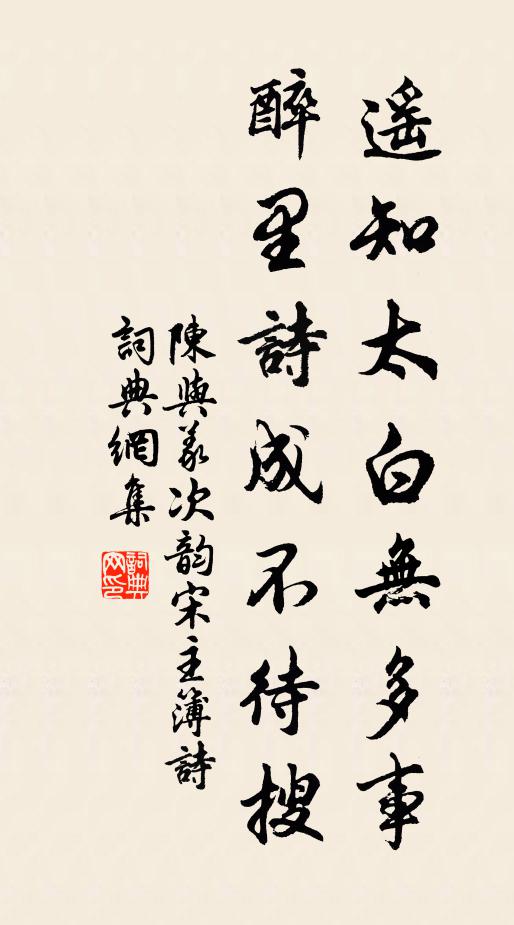 遥知太白無多事
醉里詩成不待搜
陳與義次韵宋主簿詩
詞典網集
詞典网印